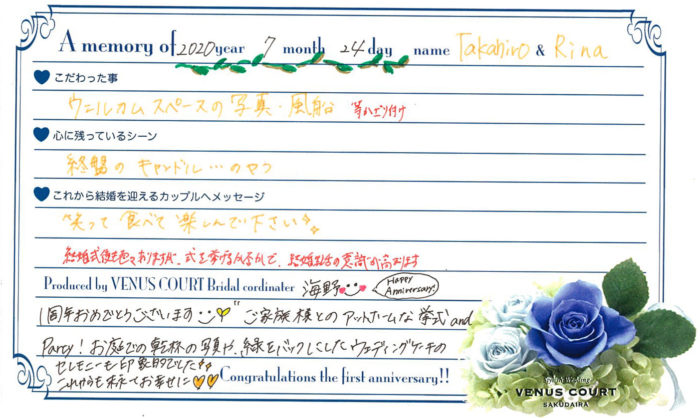 A memory of 2020 year 7 month 24 day name Takahiro & Rina
こだわった事
ウェルカムスペースの写真・風船 等かざり付け
心に残っているシーン
終盤のキャンドル…のやつ
これから結婚を迎えるカップルへメッセージ
笑って食べて楽しんで下さい
結婚式後も色々ありますが、式を挙げ
Produced by VENUS COURT Bridal cordinater 海野 Happy Anniversary!
1周年おめでとうございます ご家族様とのアットホームな挙式and
Party! お庭での乾杯の写真や、緑をバックにしたウェディングケーキの
セレモニーも印象的でした
これからも末永くお幸せに Congratulations the first anniversary!!
VENUS COURT
SAKUDAIRA